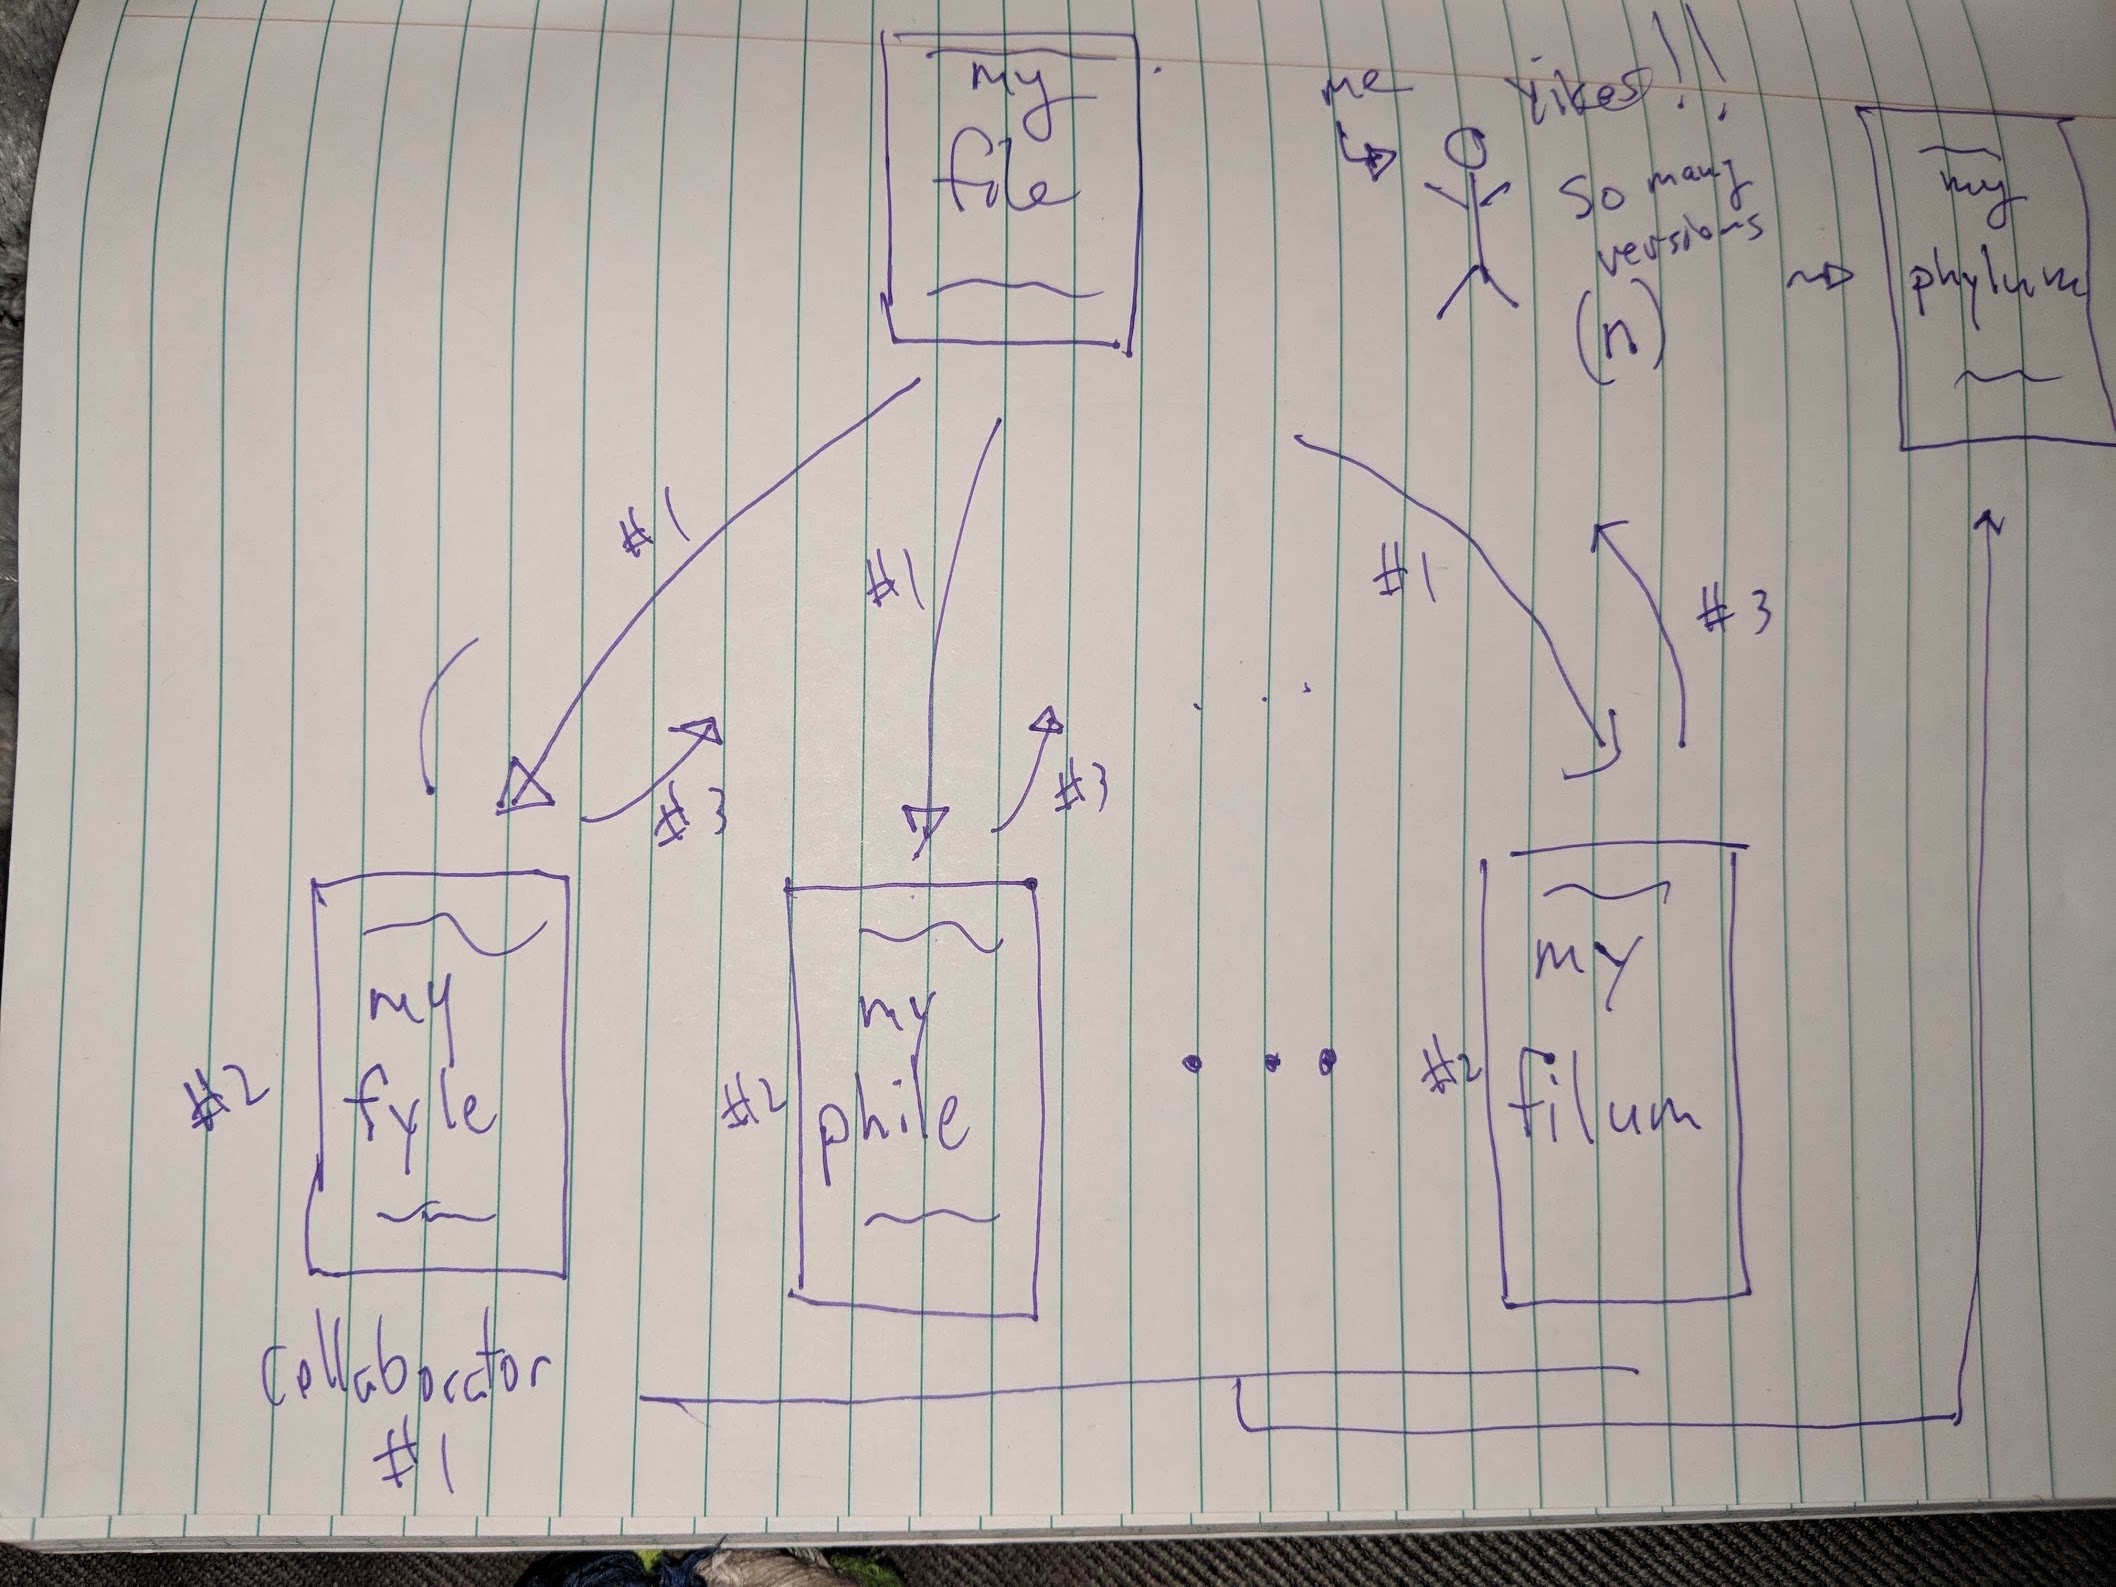 my
file
me
Yikes!!
so many
versions
(n)
my
phylum
#1
#1
#1
#3
#3
#3
#2
my
fyle
#2
my
phile
#2
my
filum
collaborator
#1